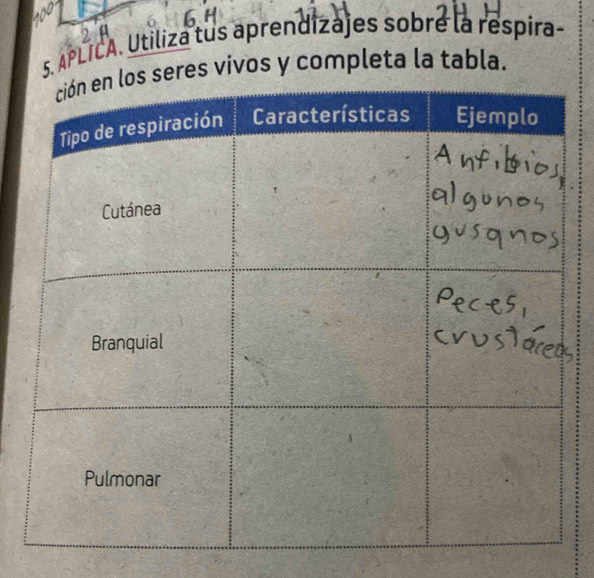 1007
2 H
6 H
2H H
5. APLICA. Utiliza tus aprendizajes sobre la respira-
ción en los seres vivos y completa la tabla.
Tipo de respiración Características Ejemplo
Cutánea
Anfibios,
algunos
gusanos
Branquial
Peces,
crustáceos
Pulmonar